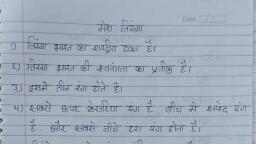 मेरा तिरंगा
1) तिरंगा भारत का राष्ट्रीय ध्वज है।
2) तिरंगा भारत की स्वतंत्रता का प्रतीक है।
3) इसमे तीन रंग होते है।
4) सबसे ऊपर केसरिया रंग है, बीच मे सफेद रंग
है और सबसे नीचे हरा रंग होता है।